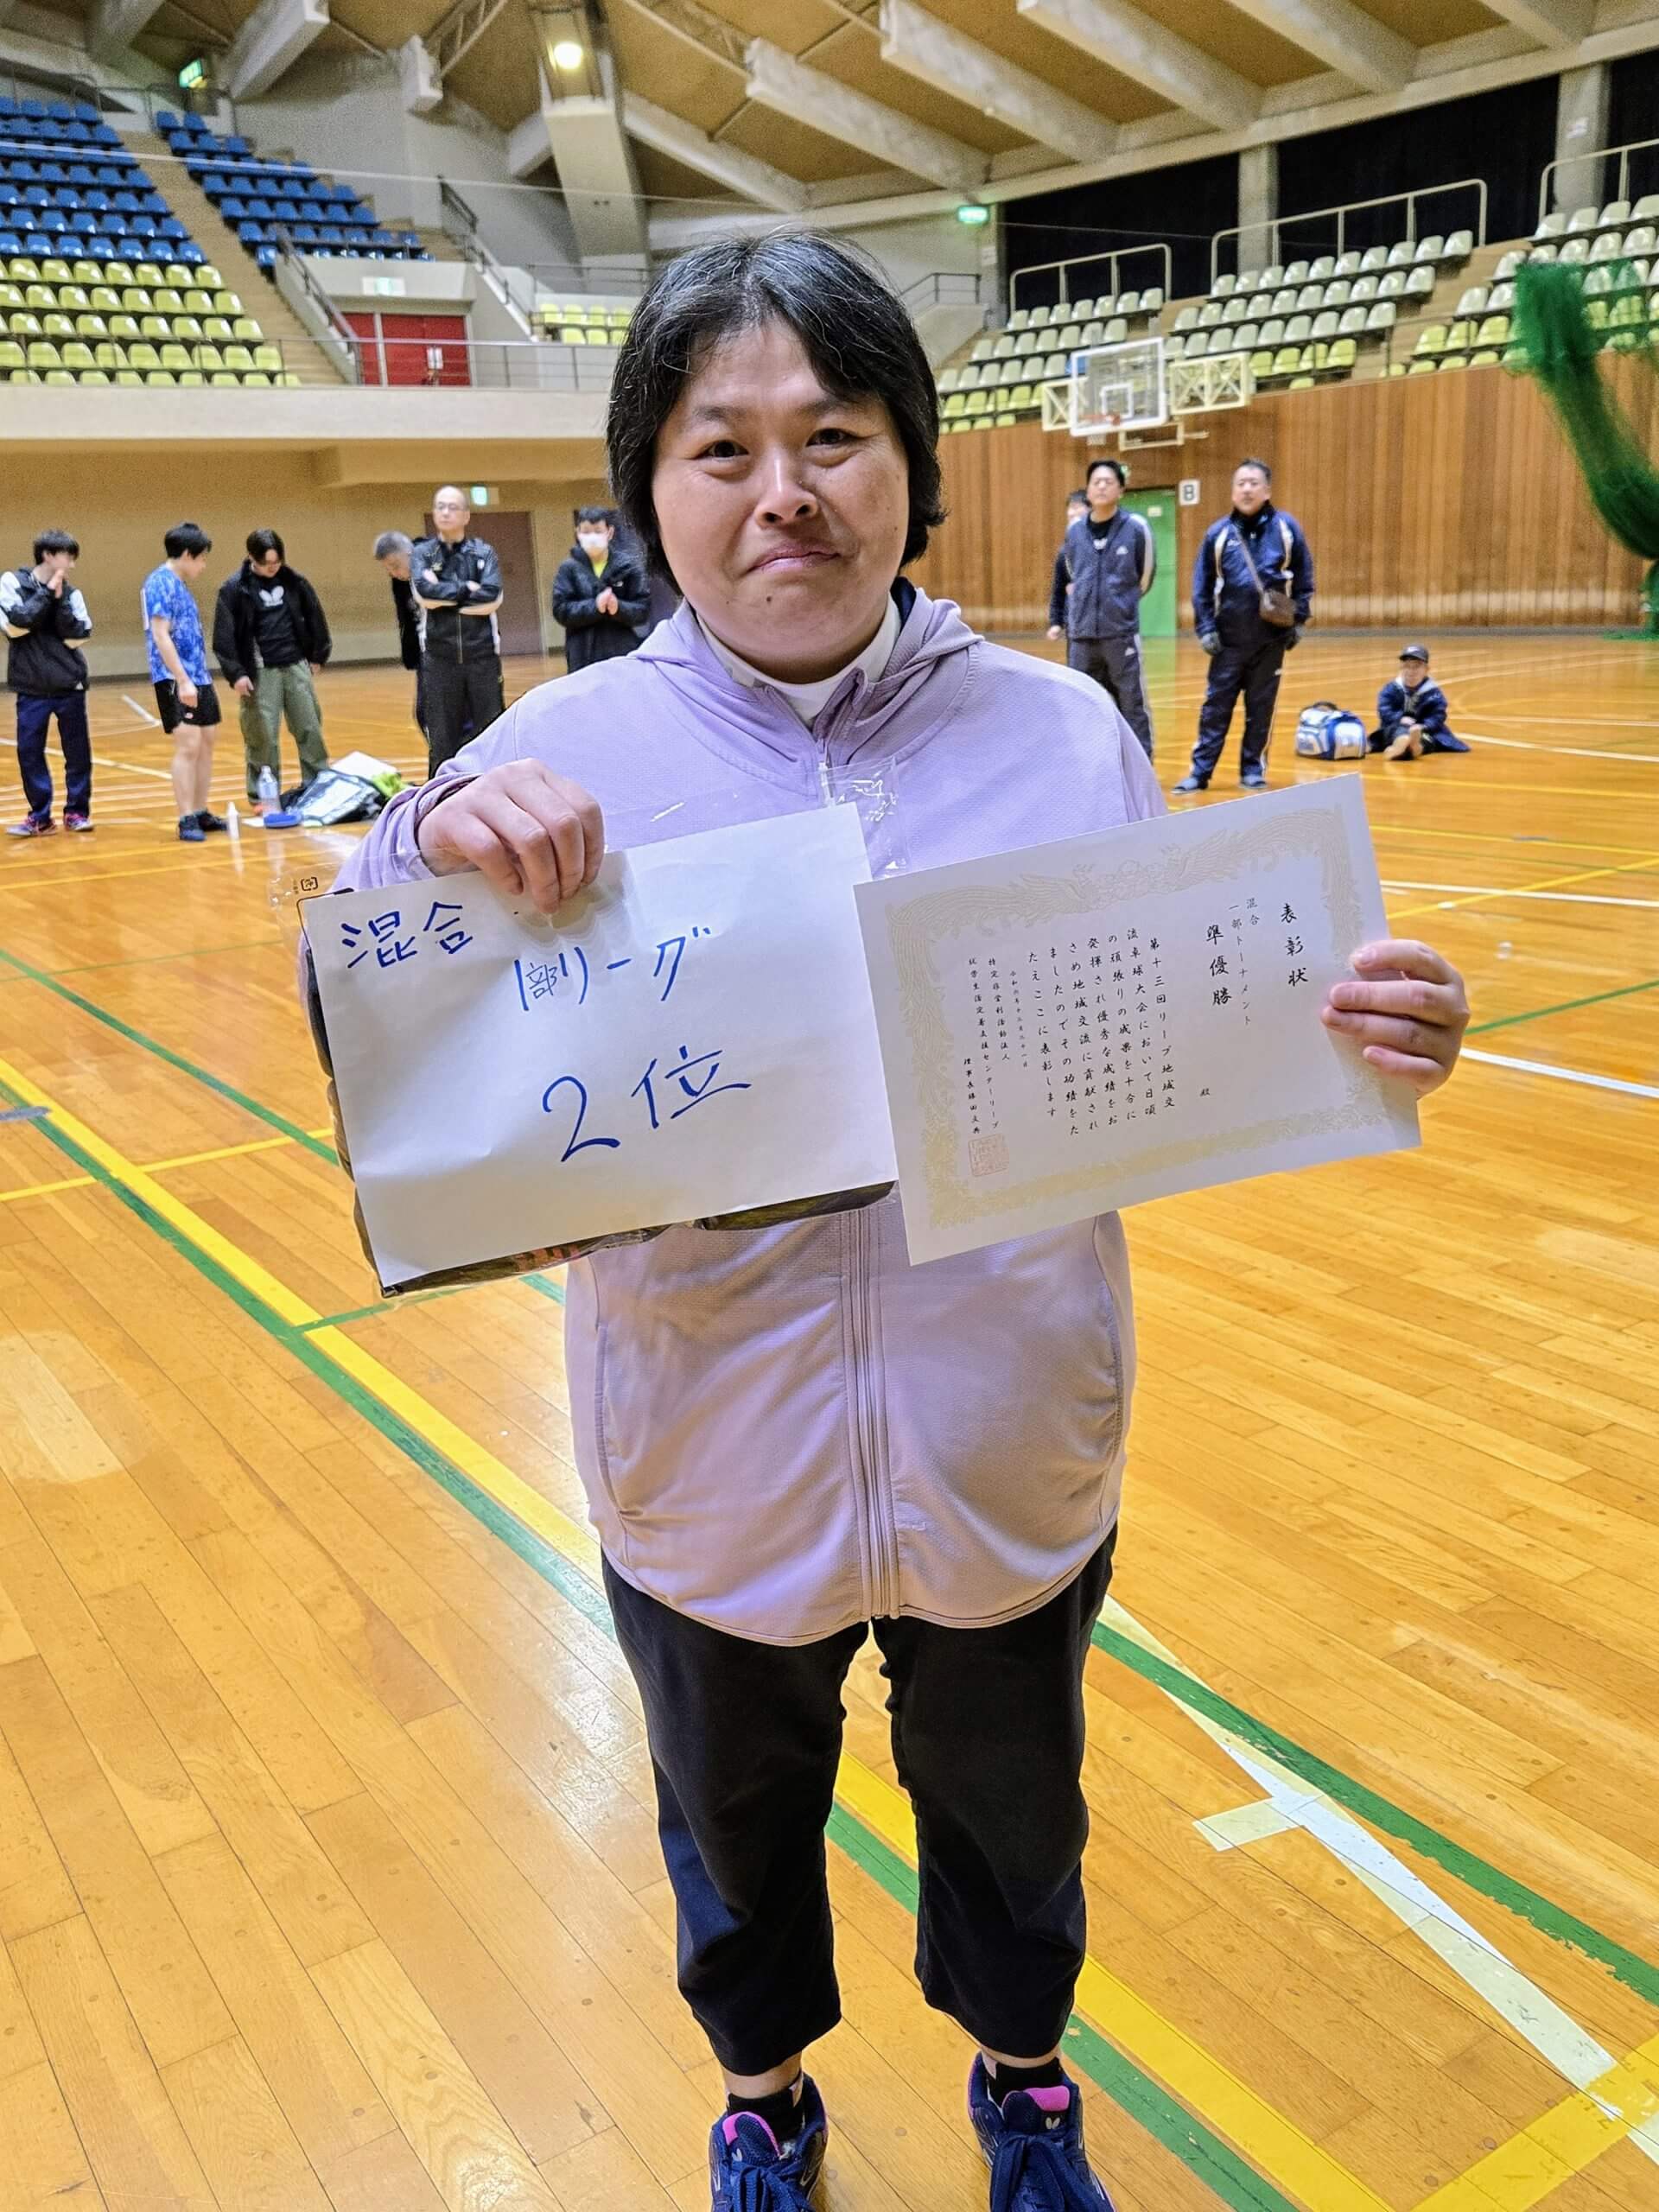 混合
1部リーグ
2位
表彰状
混合
一部トーナメント
準優勝
殿
第十三回リーブ地域交
流卓球大会において日頃
の頑張りの成果を十分に
発揮され優秀な成績をお
さめ地域交流に貢献され
ましたのでその功績をた
たえここに表彰します
特定非営利活動法人
就労生活定着支援センターリーブ
B